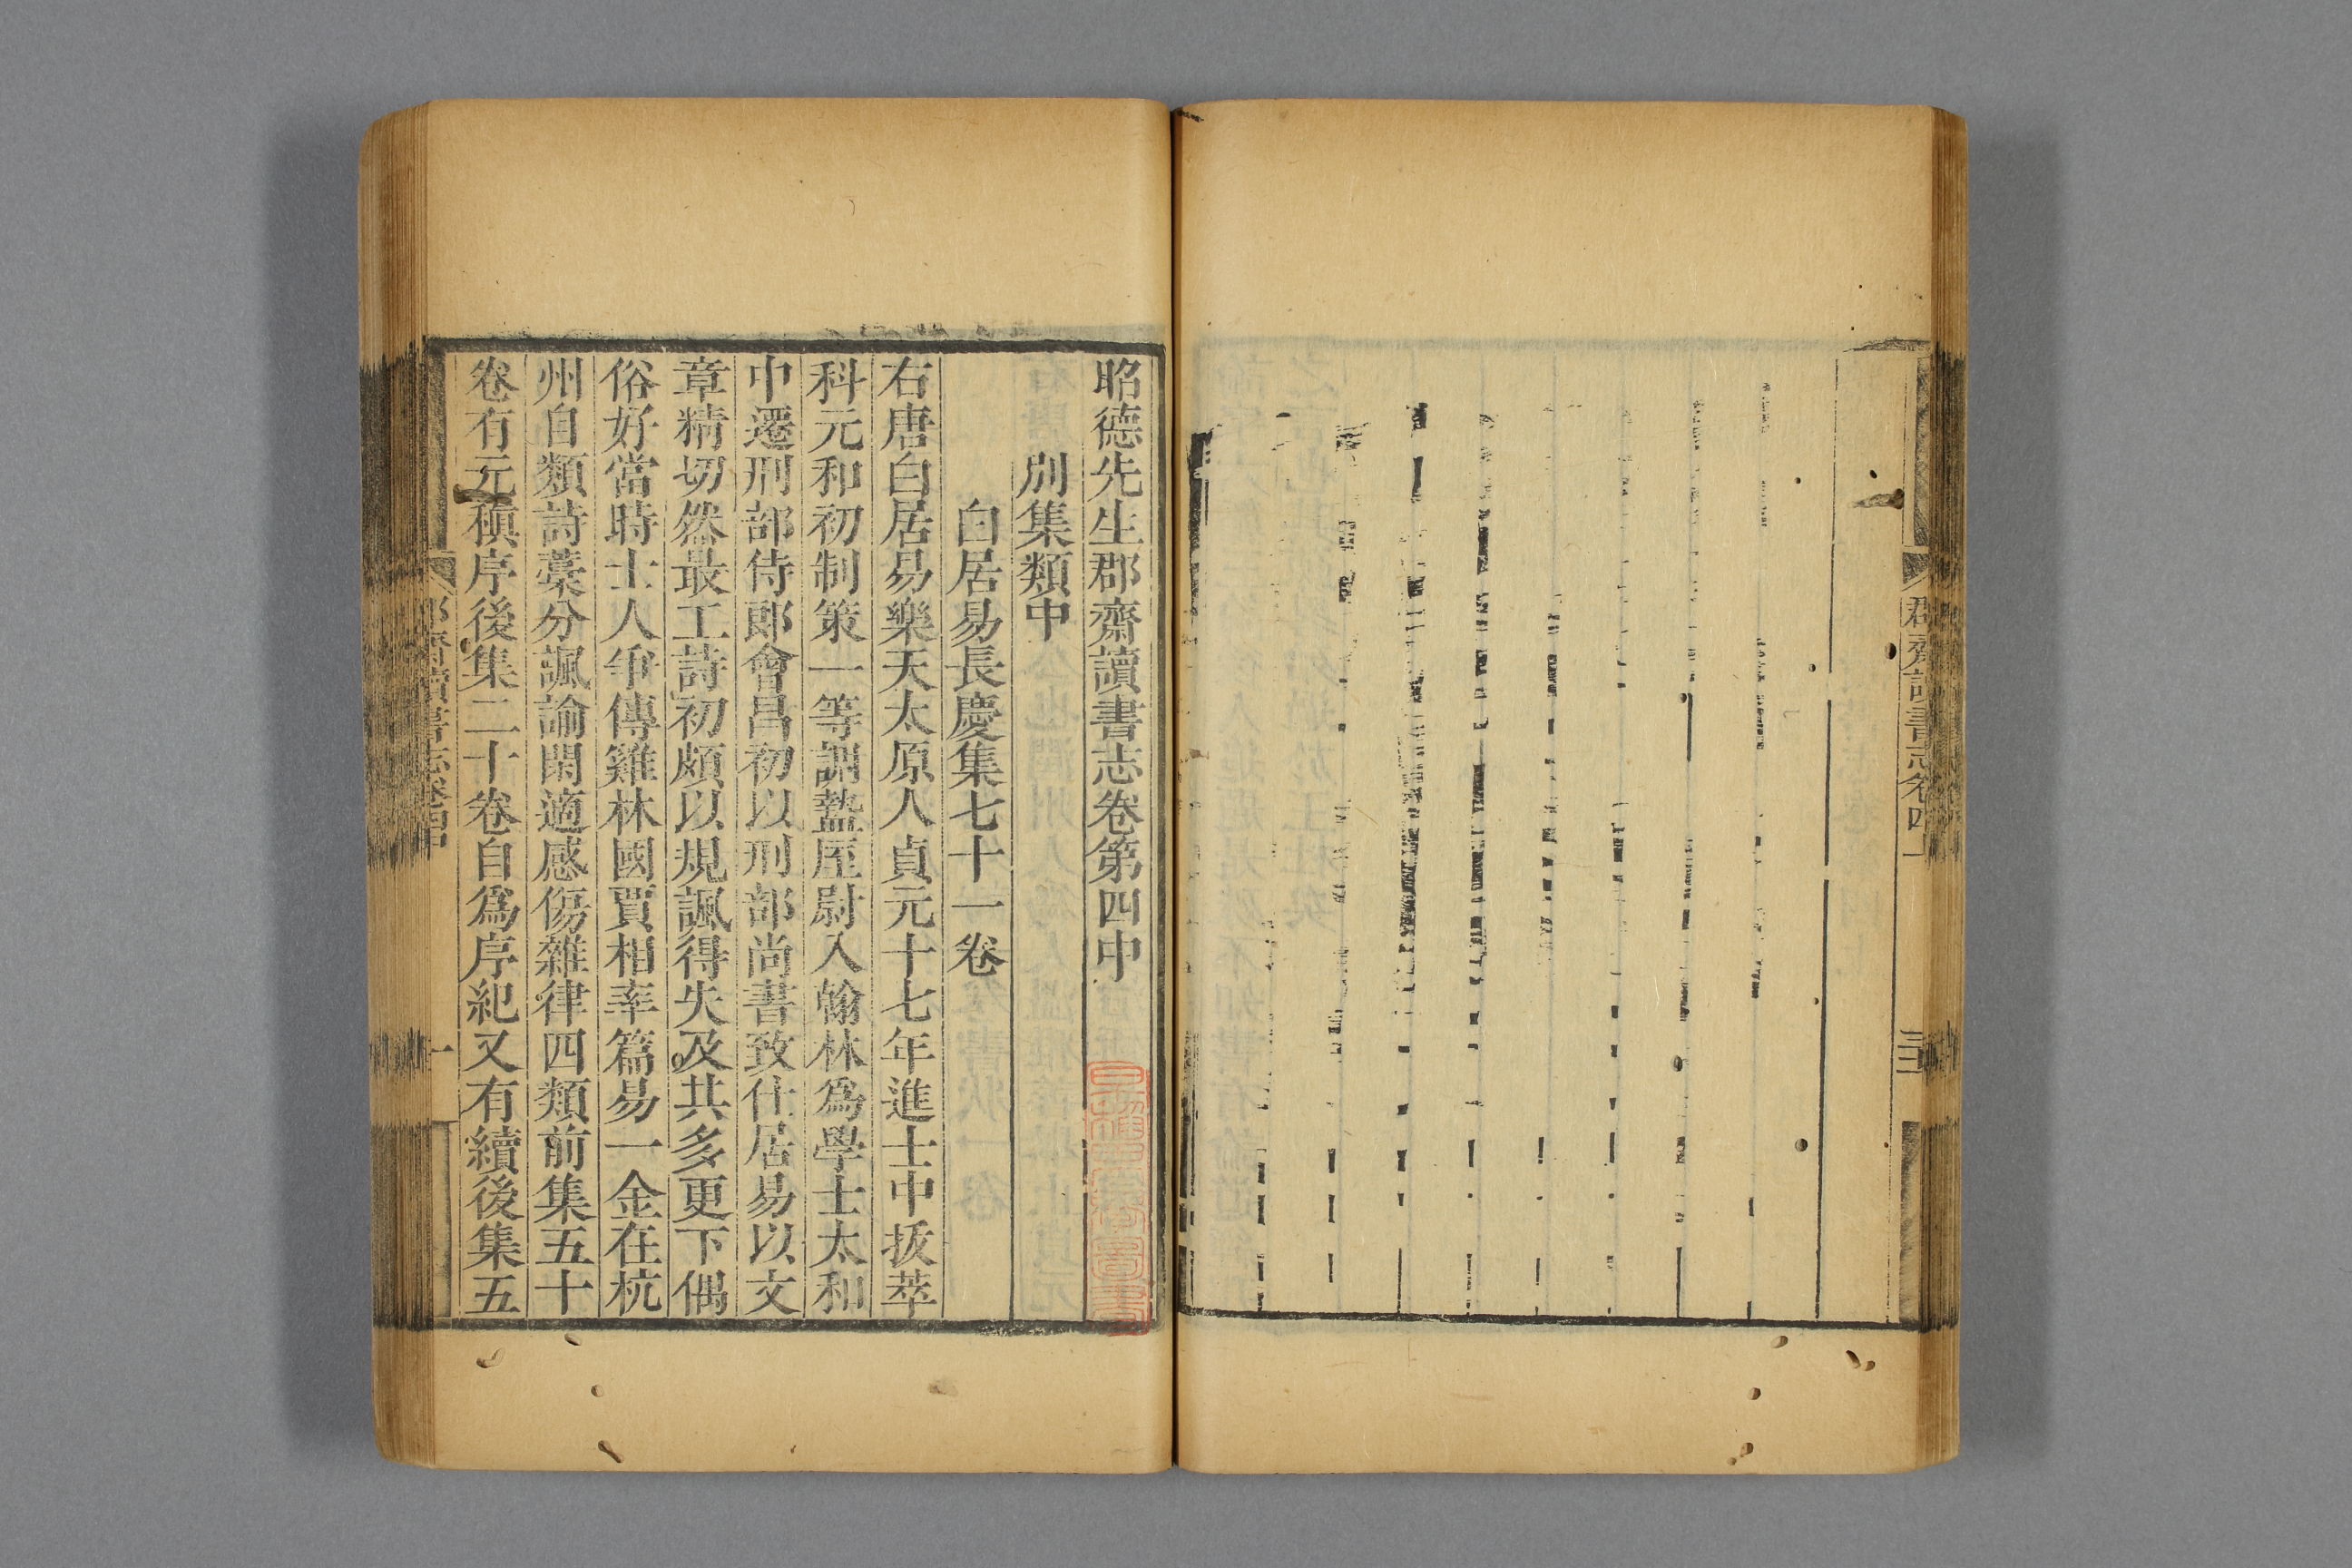 郡齋讀書志卷四上
三十一
昭德先生郡齋讀書志卷第四中
別集類中
白居易長慶集七十一卷
右唐白居易樂天太原人貞元十七年進士中拔萃
科元和初制策一等調盩厔尉入翰林爲學士太和
中遷刑部侍郎會昌初以刑部尚書致仕居易以文
章精切然最工詩初頗以規諷得失及其多更下偶
俗好當時士人爭傳雞林國賈相率篇易一金在杭
州自類詩藁分諷諭閑適感傷雜律四類前集五十
卷有元稹序後集二十卷自爲序紀又有續後集五
郡齋讀書志卷四中
一